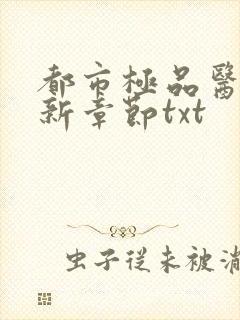 都市極品醫
新章節txt
虫子從未被消